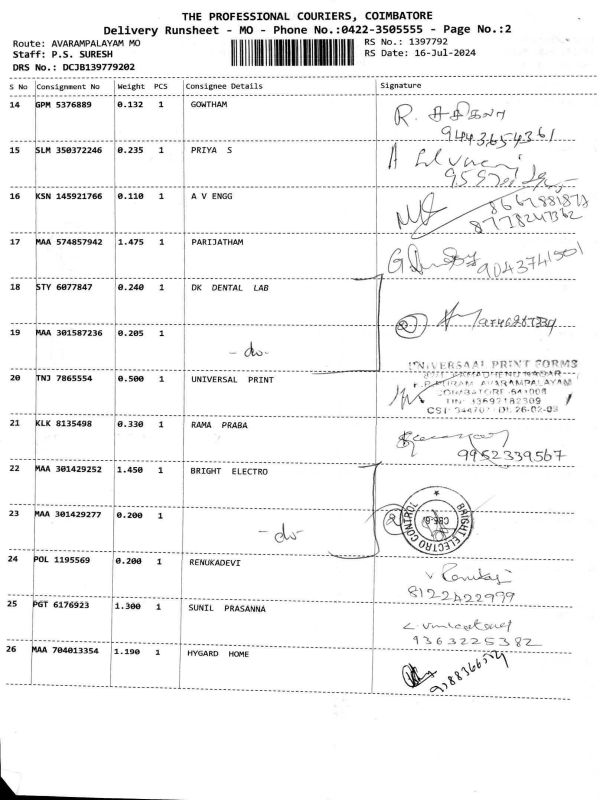 THE PROFESSIONAL COURIERS, COIMBATORE
Delivery Runsheet - MO - Phone No.:0422-3505555 - Page No.:2
Route: AVARAMPALAYAM MO
RS No.: 1397792
Staff: P.S. SURESH
RS Date: 16-Jul-2024
DRS No.: DCJB139779202
S No Consignment No Weight PCS Consignee Details Signature
14 GPM 5376889 0.132 1 GOWTHAM
R. சசிகலா
9443654361
15 SLM 350372246 0.235 1 PRIYA S
16 KSN 145921766 0.110 1 A V ENGG
8778247362
17 MAA 574857942 1.475 1 PARIJATHAM
9043741501
18 STY 6077847 0.240 1 DK DENTAL LAB
19 MAA 301587236 0.205 1
- do -
20 TNJ 7865554 0.500 1 UNIVERSAL PRINT
UNIVERSAAL PRINT FORMS
AVARAMPALAYAM
COIMBATORE-641006
TIN: 33692182309
21 KLK 8135498 0.330 1 RAMA PRABA
9952339567
22 MAA 301429252 1.450 1 BRIGHT ELECTRO
23 MAA 301429277 0.200 1
- do -
2
BRIGHT ELECTRO CONTROL
CBE-6
24 POL 1195569 0.200 1 RENUKADEVI
8122422999
25 PGT 6176923 1.300 1 SUNIL PRASANNA
9363225382
26 MAA 704013354 1.190 1 HYGARD HOME